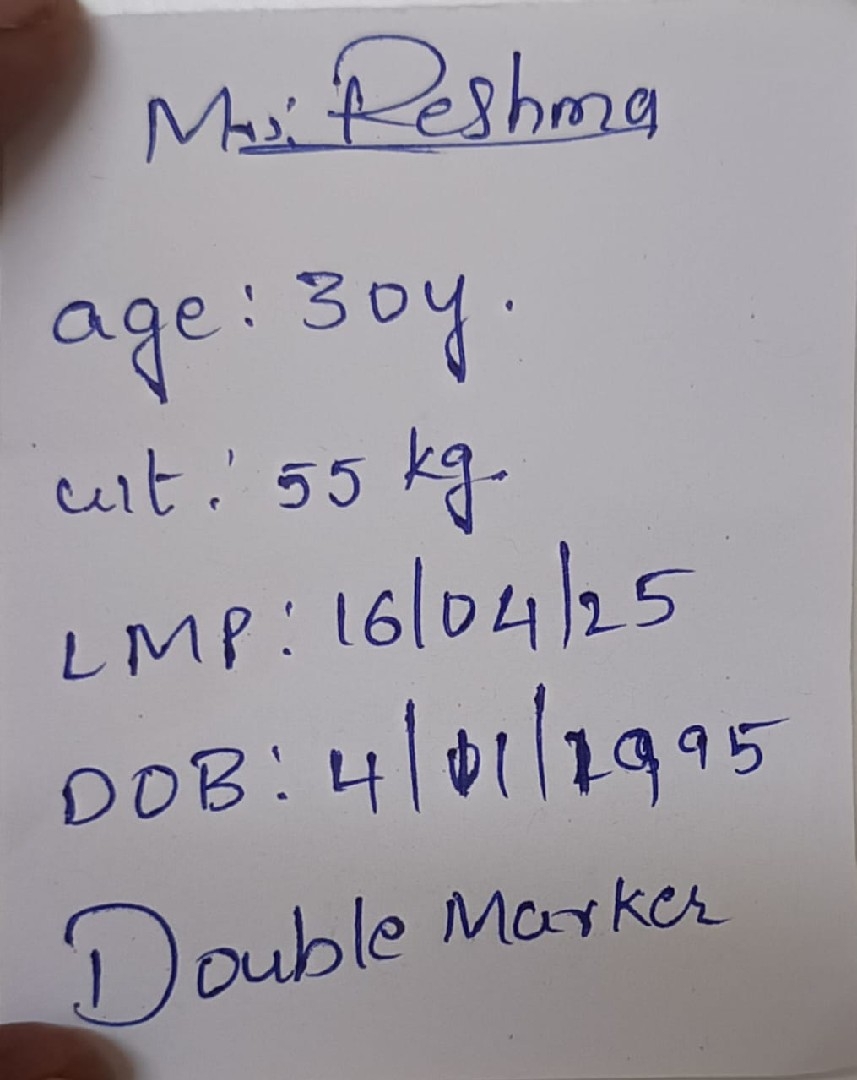 Mrs. Reshma
age: 30y.
wt: 55 kg.
LMP: 16/04/25
DOB: 4/01/1995
Double Marker